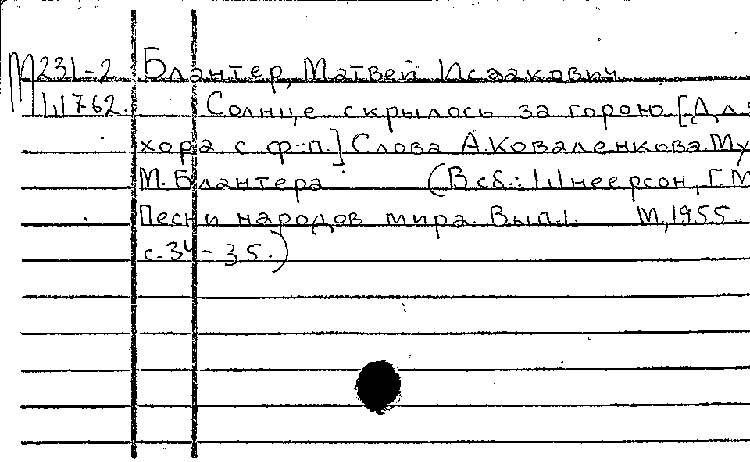 М231-2 Блантер, Матвей Исаакович
Ш762. Солнце скрылось за горою. [Дл
хора с ф-п.] Слова А. Коваленкова. Му
М. Блантера (В сб.: Шнеерсон, Г.М
Песни народов мира. Вып.1. М, 1955.
с. 34-35.)